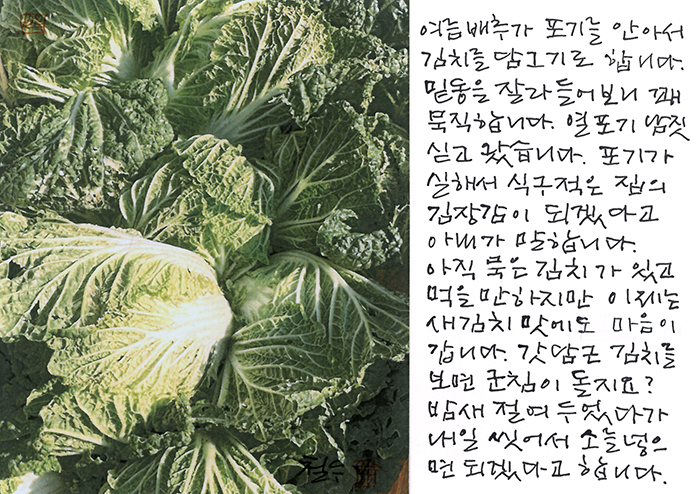 여름배추가 포기를 안아서
김치를 담그기로 합니다.
밑동을 잘라 들어보니 꽤
묵직합니다. 열포기 남짓
싣고 왔습니다. 포기가
실해서 식구적은 집의
김장감이 되겠다고
아내가 말합니다.
아직 묵은 김치가 있고
먹을만하지만 이제는
새김치 맛에도 마음이
갑니다. 갓담근 김치를
보면 군침이 돌지요?
밤새 절여 두었다가
내일 씻어서 소를넣으
면 되겠다고 합니다.
철수